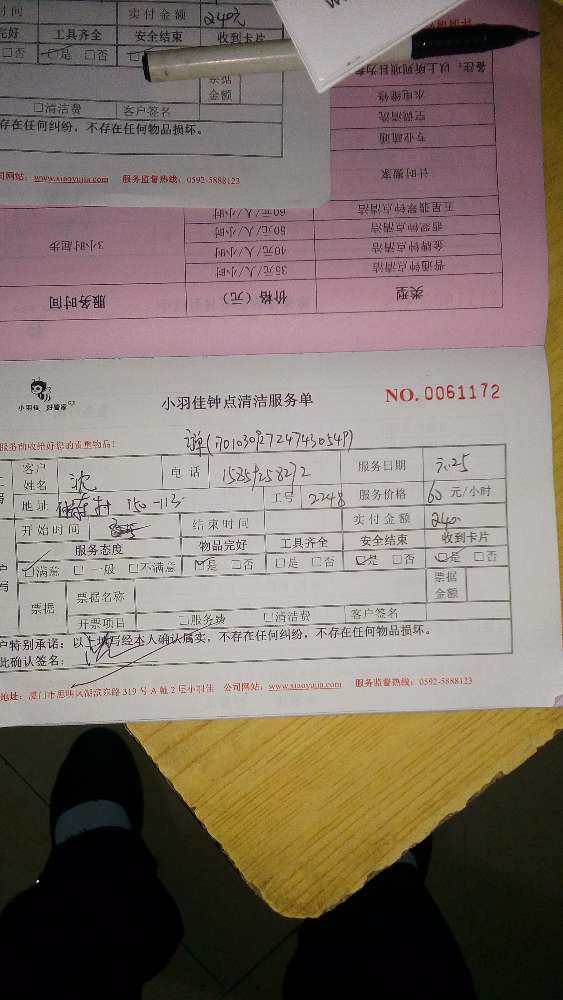 时间 实付金额 240元
完好 工具齐全 安全结束 收到卡片
□否 □是 □否
票据金额
□清洁费 客户签名
存在任何纠纷，不存在任何物品损坏。
司网站：www.xiaoyujia.com 服务监督热线：0592-5888123
备注：以上所列项目为
水电维修
空调清洗
专业疏通
计时搬家
五星翡翠钟点清洁 60元/人/小时
翡翠钟点清洁 50元/人/小时
金牌钟点清洁 40元/人/小时 3小时起步
普通钟点清洁 35元/人/小时
类型 价格（元） 服务时间
小羽佳 好管家
小羽佳钟点清洁服务单 NO. 0061172
服务前收拾好您的贵重物品！
单(1701030927247430549)
客户姓名 沈 电话 服务日期
地址 150-113 工号 2248 服务价格 60 元/小时
开始时间 结束时间 实付金额 240
服务态度 物品完好 工具齐全 安全结束 收到卡片
□满意 □一般 □不满意 □是 □否 □是 □否 □是 □否 □是 □否
票据 票据名称 票据金额
开票项目 □服务费 □清洁费 客户签名
户特别承诺：以上填写经本人确认属实，不存在任何纠纷，不存在任何物品损坏。
此确认签名： 沈
地址：厦门市思明区湖滨东路 319 号 A 幢 2 层小羽佳 公司网站：www.xiaoyujia.com 服务监督热线：0592-5888123